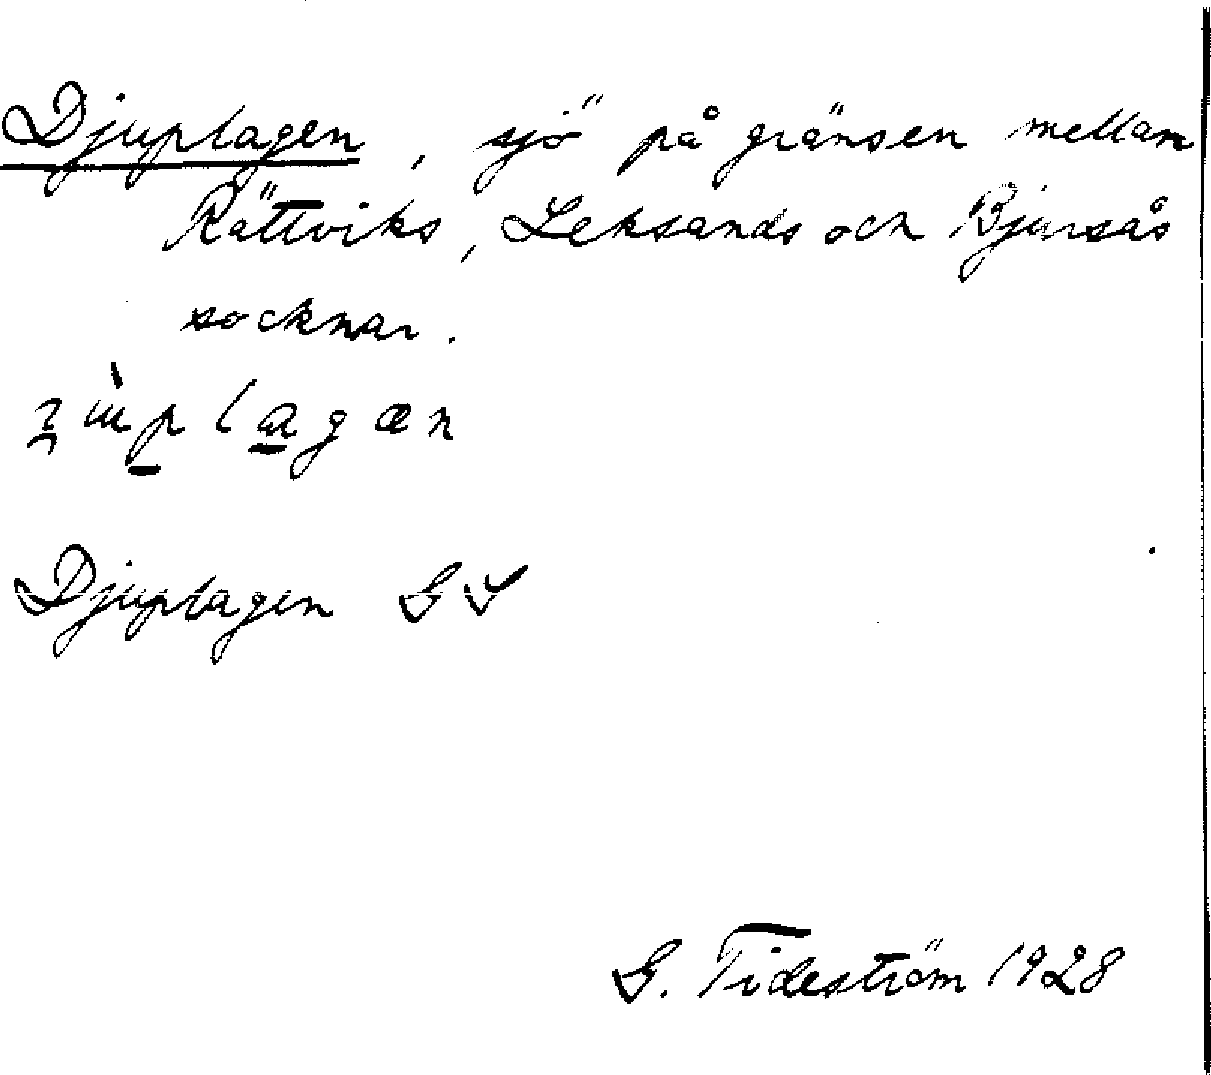 Djuplagen, sjö på gränsen mellan
Rättviks, Leksands och Bjursås
socknar.
Djuplagen GV
G. Tideström 1928